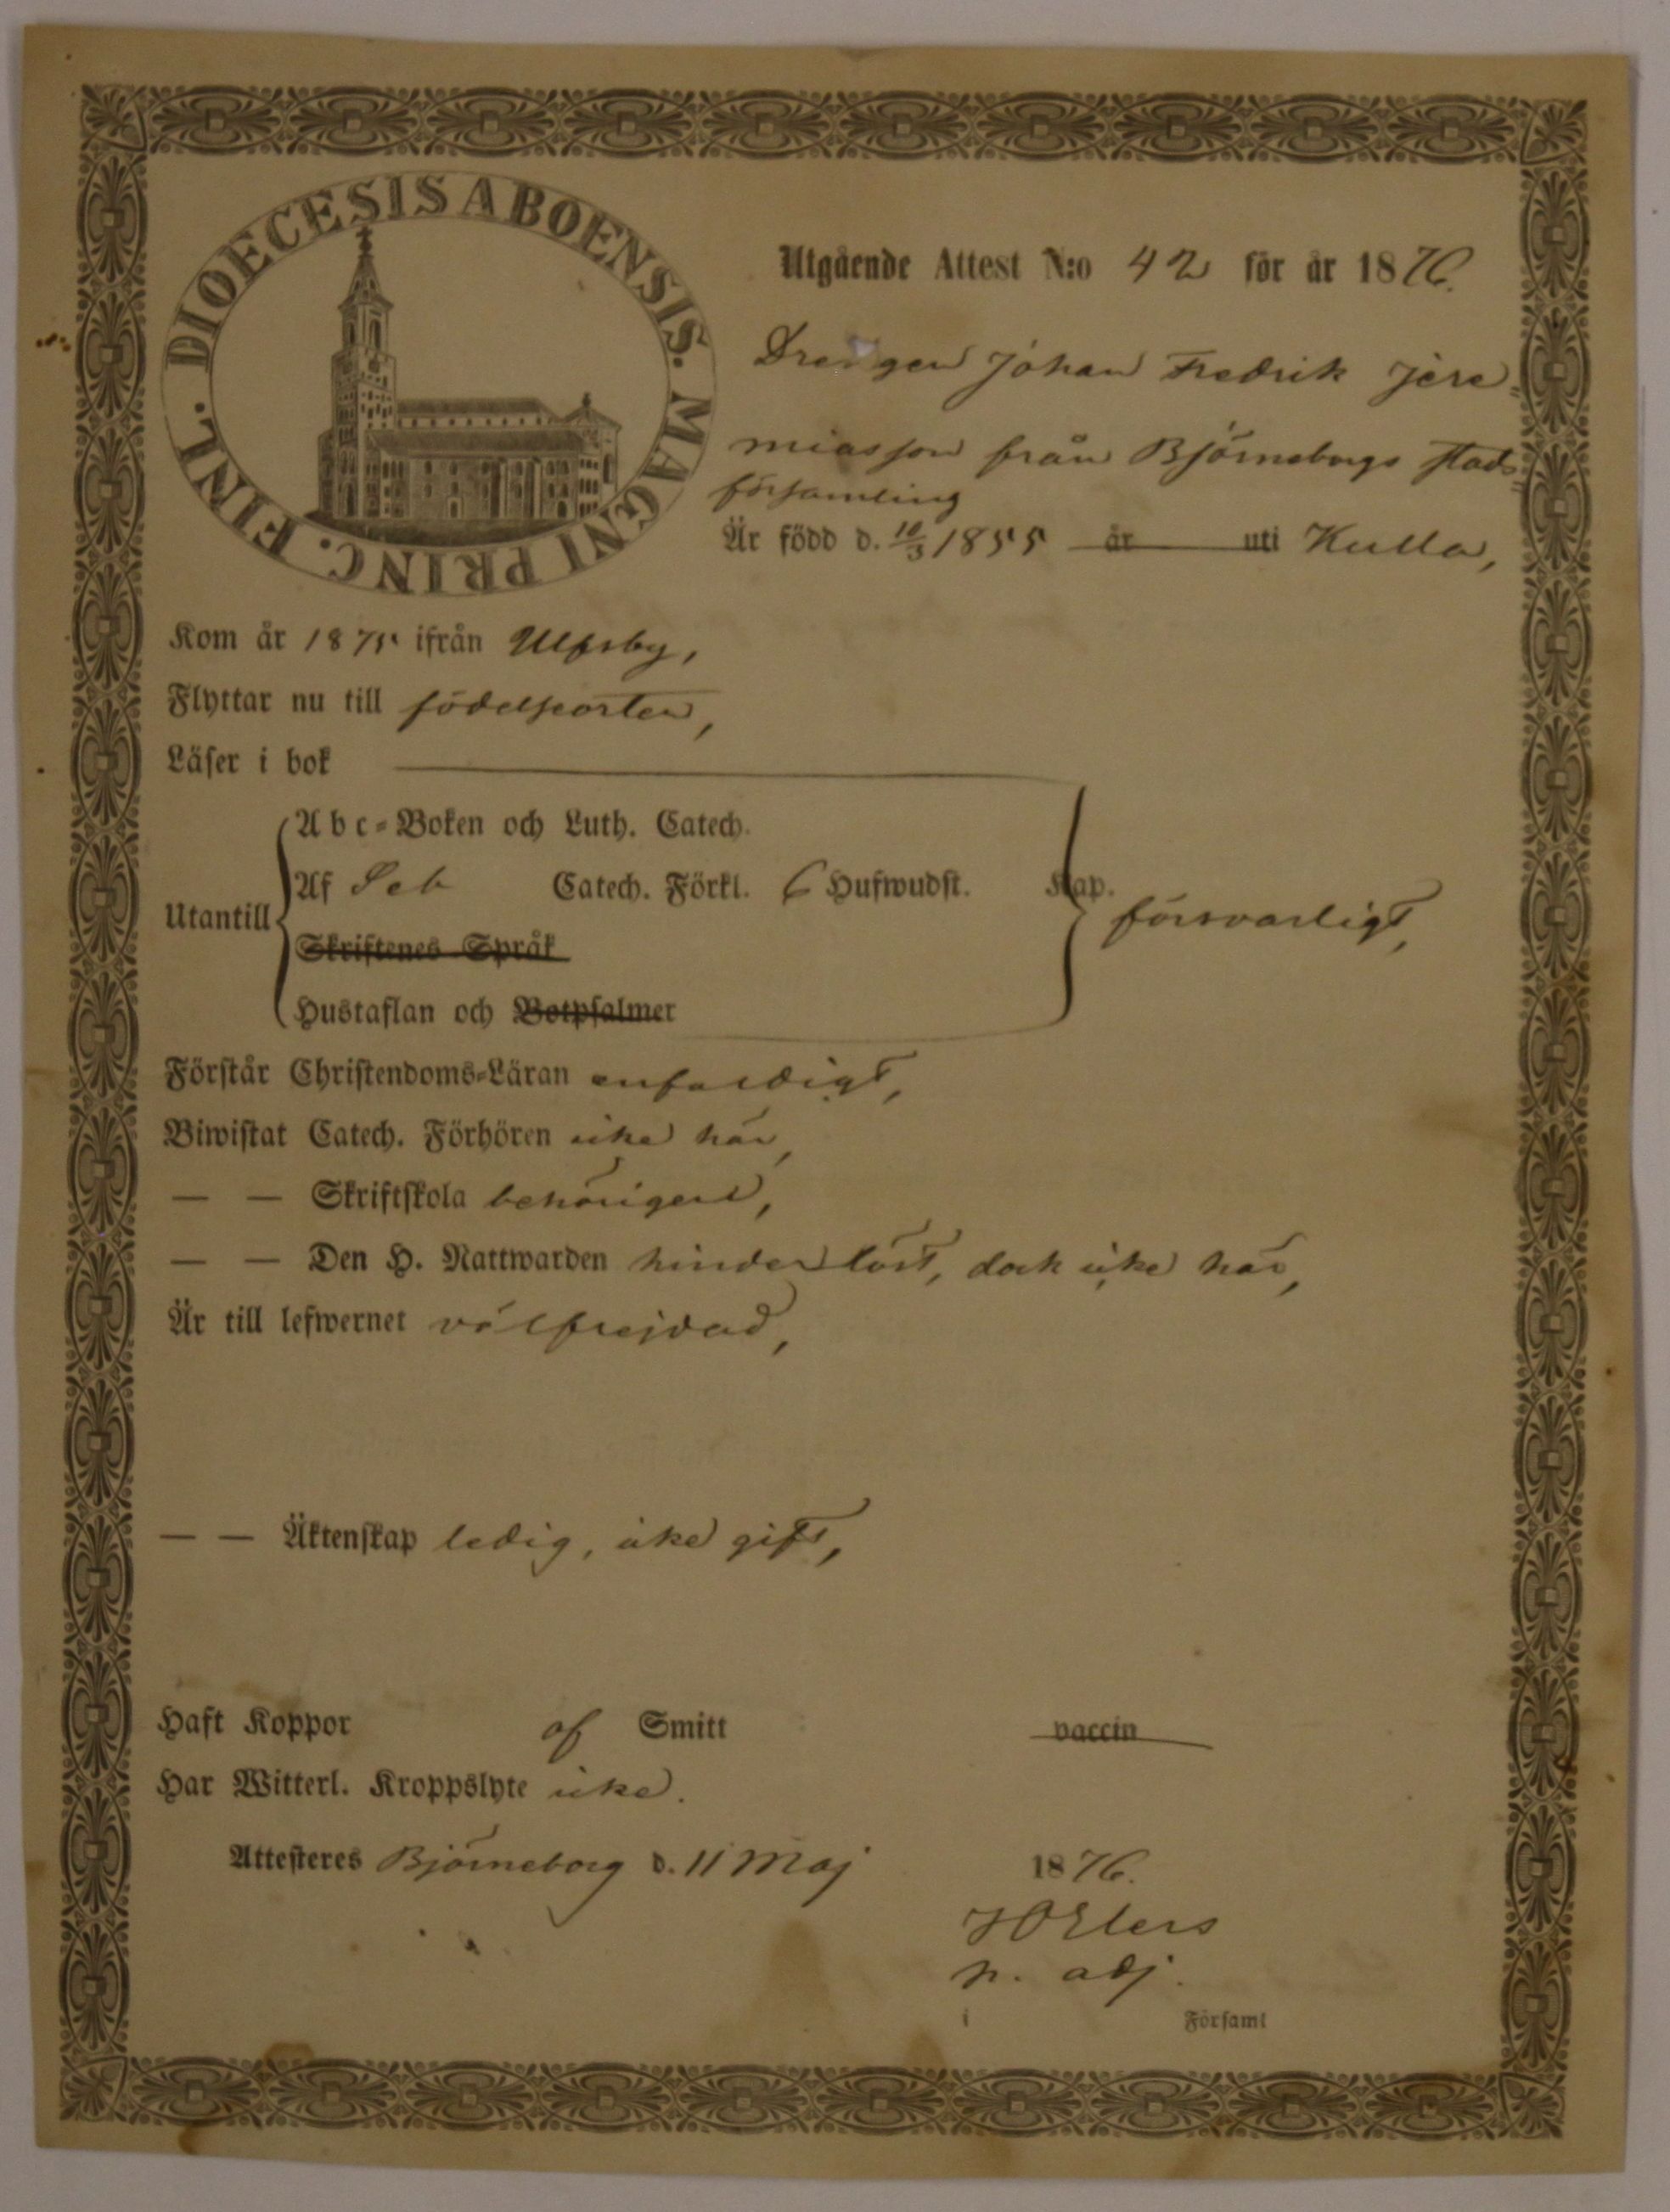 DIOECESIS ABOENSIS. MAGNI PRINC. FINL.
Utgående Attest N:o 42 för år 1876.
Drengen Johan Fredrik Jere=
miasson från Björneborgs stads=
församling
Är född d. 10/3 1855 år uti Kulla,
Kom år 1875 ifrån Ulfsby,
Flyttar nu till födelseorten,
Läser i bok
Abc-Boken och Luth. Catech.
Utantill Af Seb Catech. Förkl. 6 Hufwudst. Kap. försvarligt,
Skriftenes Språk
Hustaflan och Botpsalmer
Förstår Christendoms-Läran enfaldigt,
Biwistat Catech. Förhören icke här,
— — Skriftskola behörigen,
— — Den H. Nattwarden hinderlöst, dock icke här,
Är till lefwernet välfrejdad,
— — Äktenskap ledig, icke gift,
Haft Koppor af Smitt vaccin
Har Witterl. Kroppslyte icke.
Attesteres Björneborg d. 11 Maj 1876.
Elers
p. adj.
i Församl